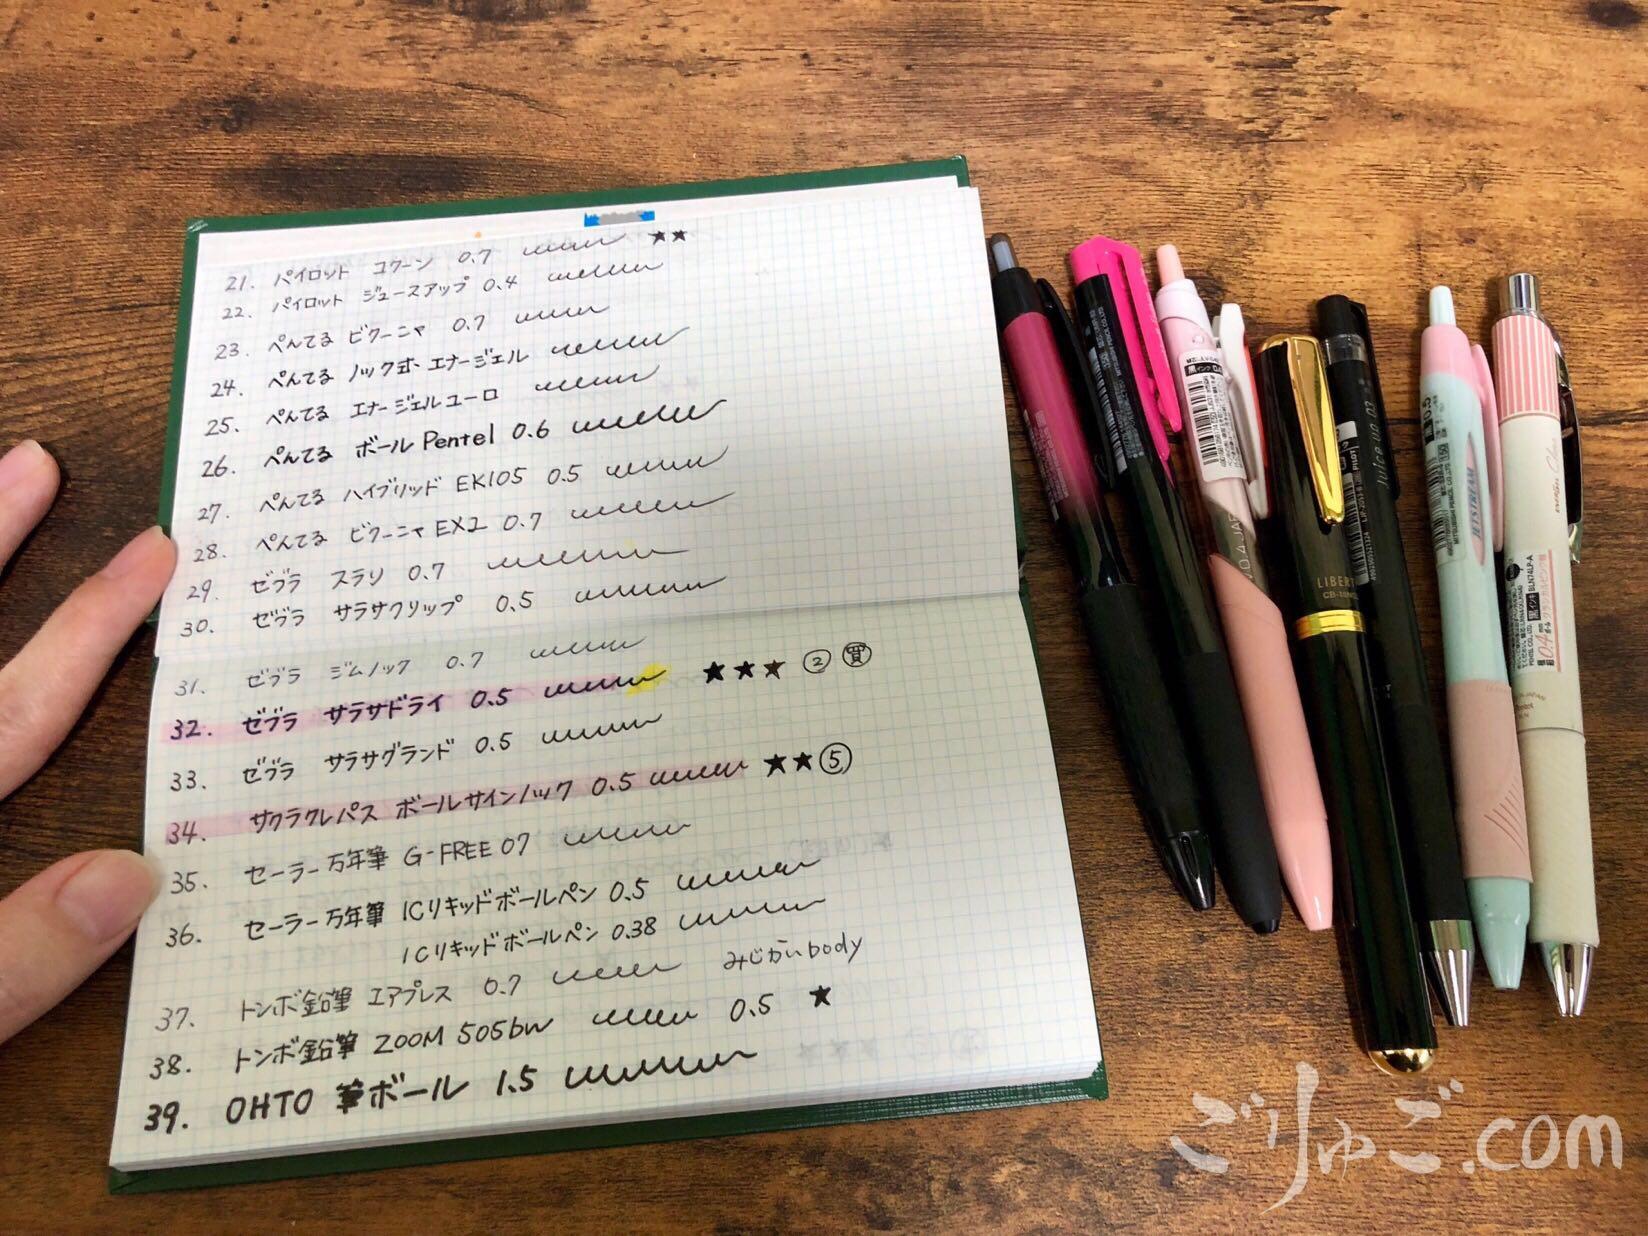 21. パイロット コクーン 0.7 ★★
22. パイロット ジュースアップ 0.4
23. ぺんてる ビクーニャ 0.7
24. ぺんてる ノック式 エナージェル
25. ぺんてる エナージェルユーロ
26. ぺんてる ボールPentel 0.6
27. ぺんてる ハイブリッド EK105 0.5
28. ぺんてる ビクーニャEX2 0.7
29. ゼブラ スラリ 0.7
30. ゼブラ サラサクリップ 0.5
31. ゼブラ ジムノック 0.7
32. ゼブラ サラサドライ 0.5 ★★★ ② 買
33. ゼブラ サラサグランド 0.5
34. サクラクレパス ボールサインノック 0.5 ★★⑤
35. セーラー万年筆 G-FREE 07
36. セーラー万年筆 ICリキッドボールペン 0.5
ICリキッドボールペン 0.38
37. トンボ鉛筆 エアプレス 0.7 みじかいbody
38. トンボ鉛筆 ZOOM 505bw 0.5 ★
39. OHTO 筆ボール 1.5
LIBERT
Juice up 03
PILOT
JETSTREAM
0.5
黒インキ BLN74LP-A
0.4
ごりゅご.com